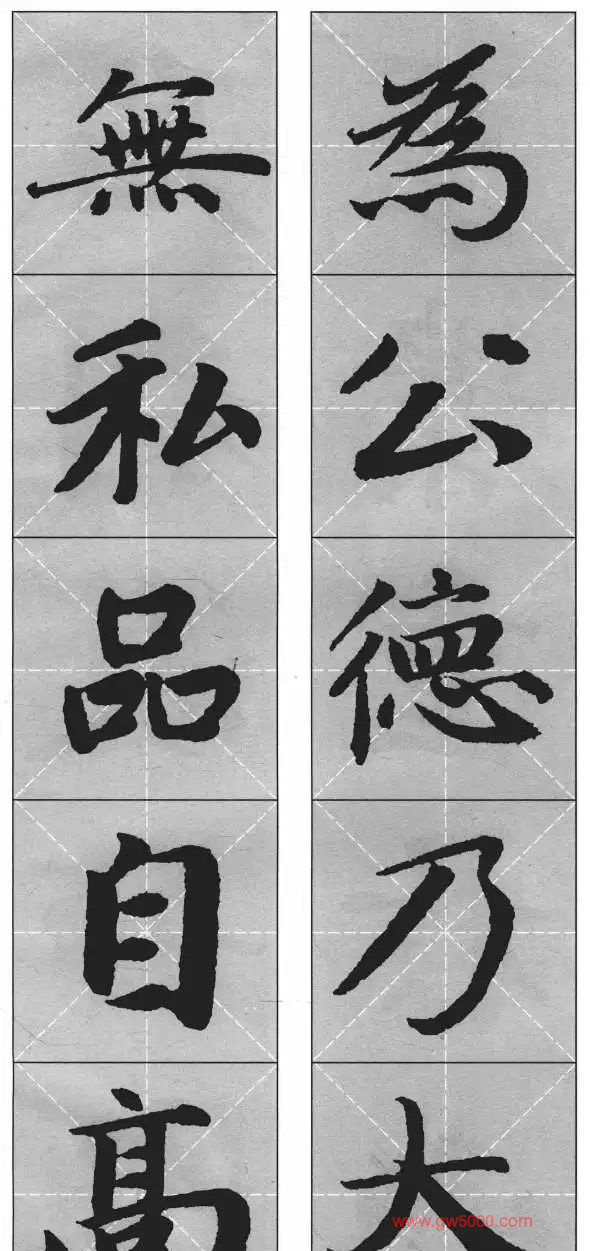 為公德乃大
無私品自高
www.gw5000.com